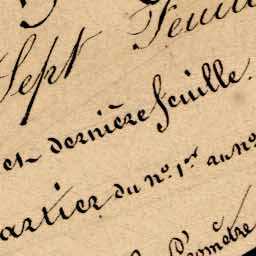 Sept Feuill
et dernière feuille.
artier du nº 1er au nº